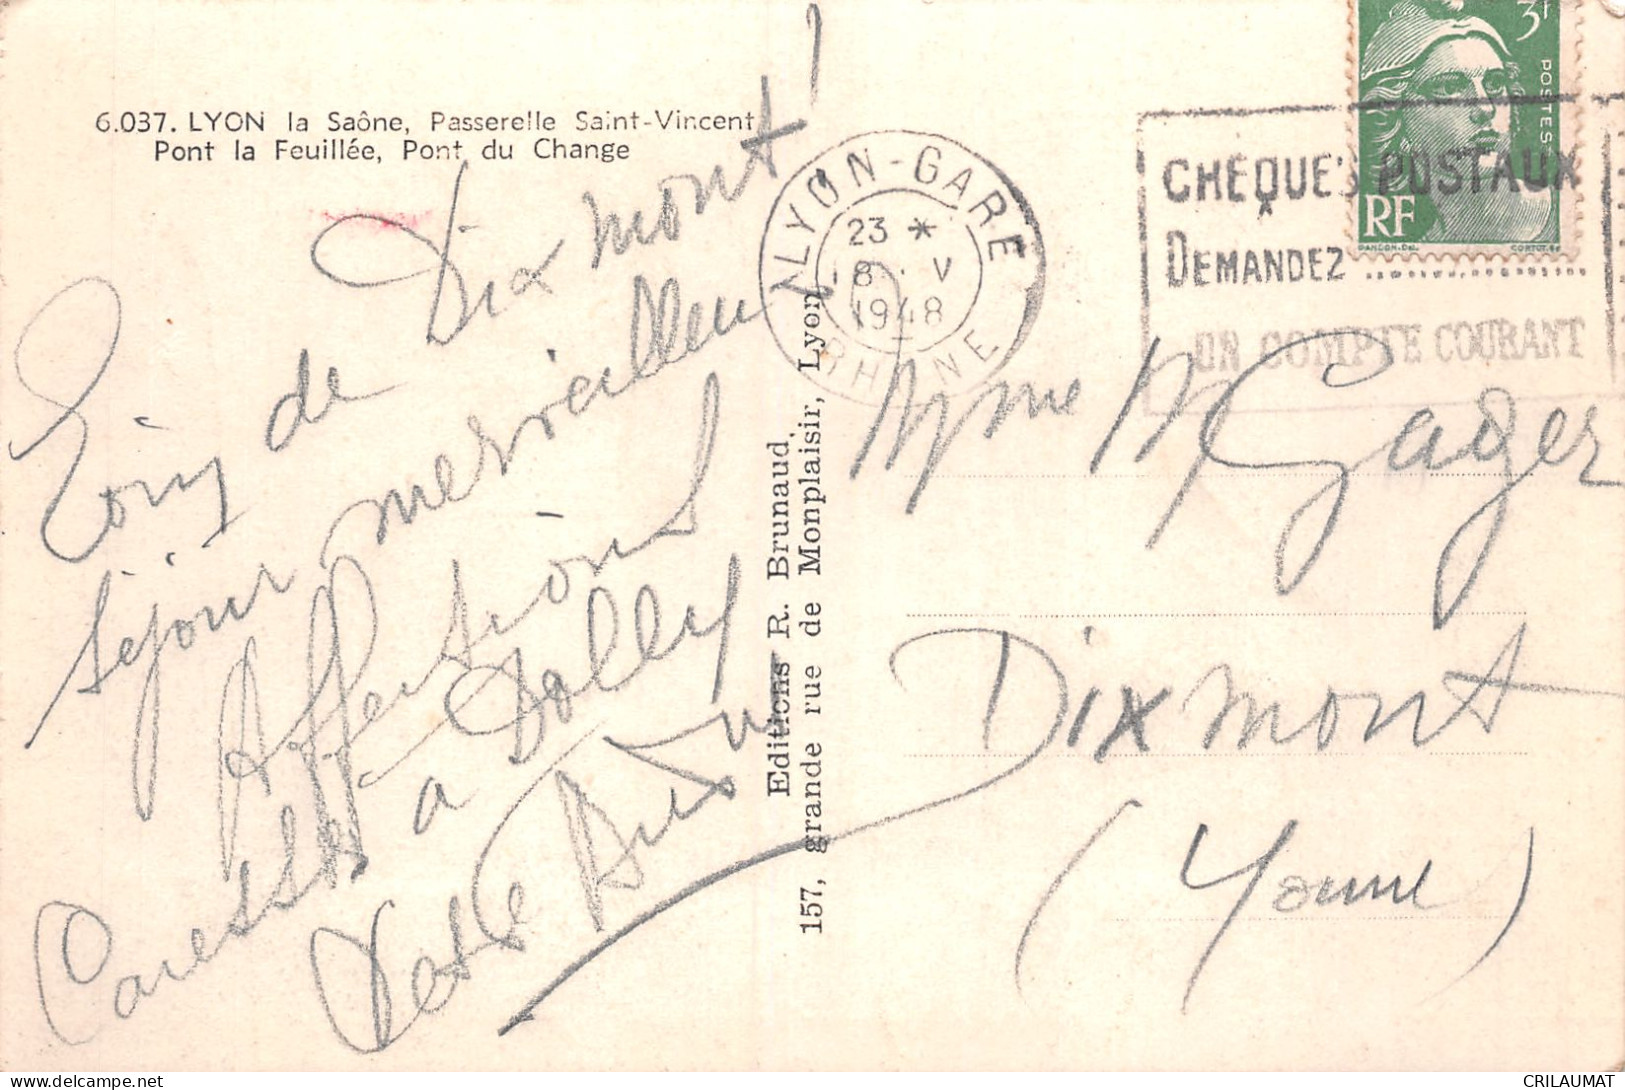 6.037. LYON la Saône, Passerelle Saint-Vincent
Pont la Feuillée, Pont du Change
Loin de Dixmont !
séjour merveilleux
Affections
Caresses a Dolly
Editions R. Brunaud,
157, grande rue de Monplaisir, Lyon
LYON-GARE
23 *
18 · V
1948
RHONE
CHEQUES POSTAUX
DEMANDEZ
UN COMPTE COURANT
3F
POSTES
RF
GANDON-DEL.
CORTOT-SC
Mme M Gager
Dixmont
(Yonne)
CRILAUMAT